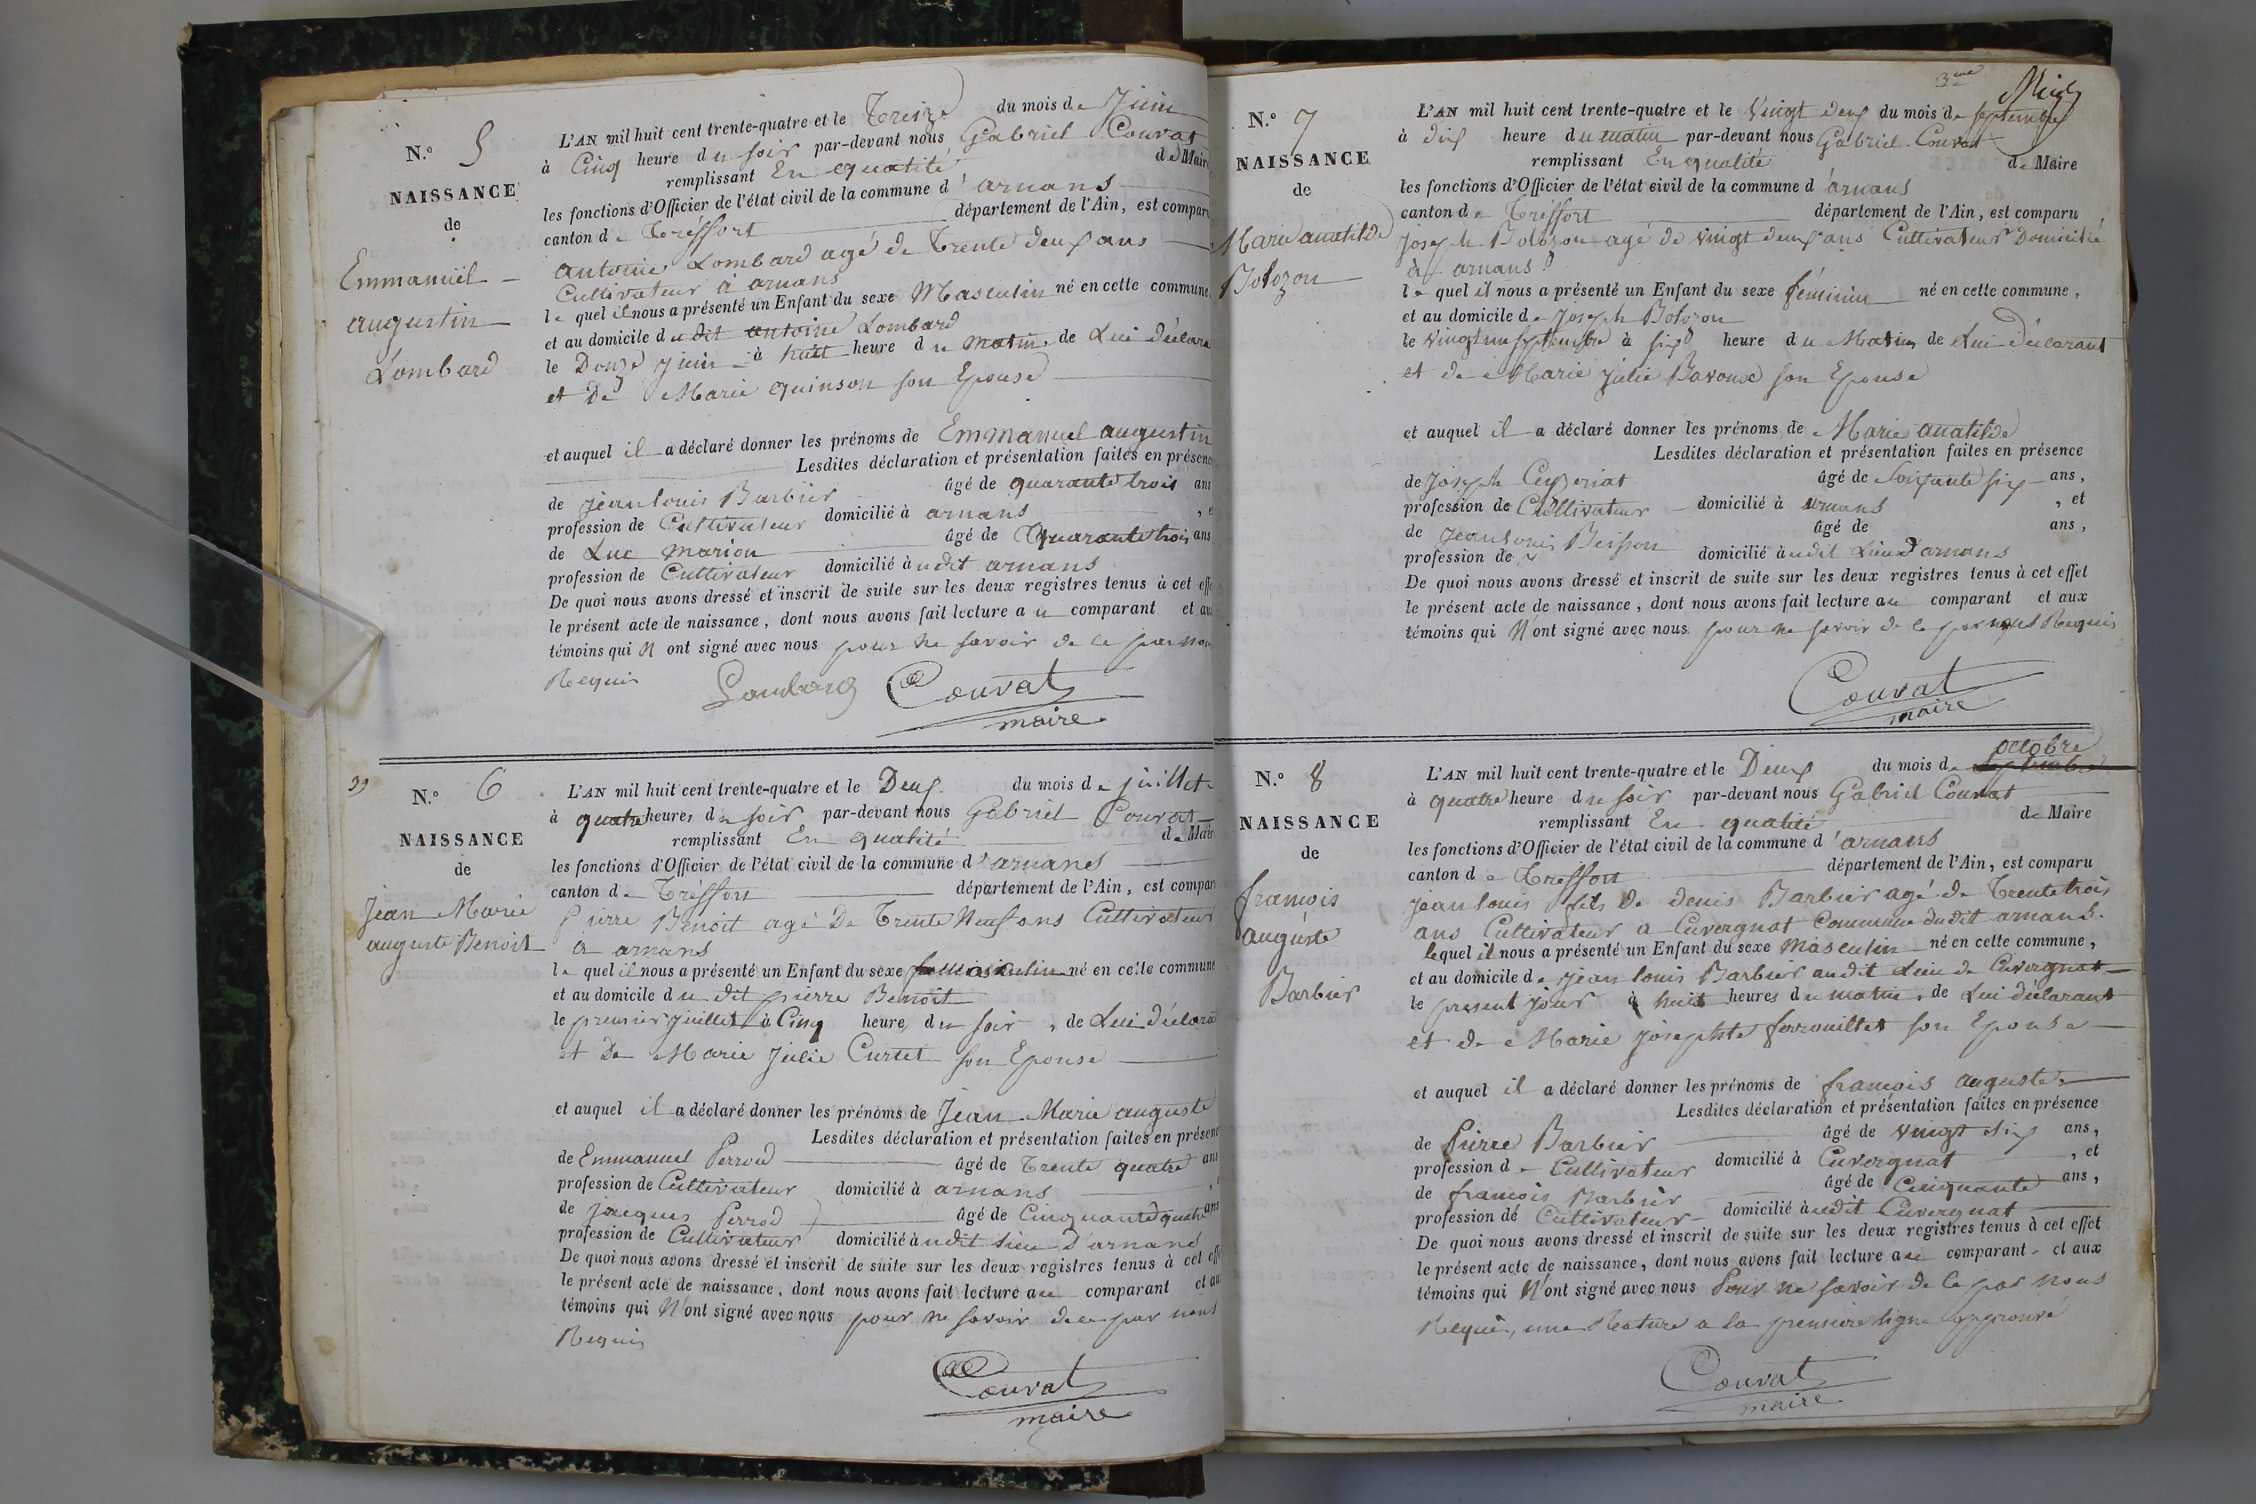 N.º 5
NAISSANCE
de
Emmanuel
augustin
Lombard
L'AN mil huit cent trente-quatre et le Treize du mois de Juin
à Cinq heure du soir par-devant nous Gabriel Couvat
remplissant En qualité de Maire
les fonctions d'Officier de l'état civil de la commune d'arnans
canton de Tréffort département de l'Ain, est comparu
antoine Lombard agé de Trente deux ans
Cultivateur à arnans
le quel il nous a présenté un Enfant du sexe Masculin né en cette commune,
et au domicile du dit antoine Lombard
le Douze juin à huit heure du matin, de Lui déclara
et De Marie quinson son Epouse
et auquel il a déclaré donner les prénoms de Emmanuel augustin
Lesdites déclaration et présentation faites en présence
de jean louis Barbier âgé de quarante trois ans
profession de Cultivateur domicilié à arnans , et
de Luc Marion âgé de Quarante trois ans
profession de Cultivateur domicilié audit arnans
De quoi nous avons dressé et inscrit de suite sur les deux registres tenus à cet effe
le présent acte de naissance, dont nous avons fait lecture au comparant et au
témoins qui N ont signé avec nous pour ne savoir de ce par nou
Requis
Lombard Couvat
maire
39
N.º 6
NAISSANCE
de
Jean Marie
auguste Benoit
L'AN mil huit cent trente-quatre et le Deux du mois de juillet
à quatre heures du soir par-devant nous Gabriel Couvat
remplissant En qualité de Maire
les fonctions d'Officier de l'état civil de la commune d'arnans
canton de Tréffort département de l'Ain, est compar
pierre Benoit agé De Trente Neuf ans Cultivateur
a arnans
le quel il nous a présenté un Enfant du sexe masculin né en cette commune
et au domicile du dit pierre Benoit
le premier juillet à Cinq heure du soir, de Lui déclara
et De Marie julie Curtet son Epouse
et auquel il a déclaré donner les prénoms de Jean Marie auguste
Lesdites déclaration et présentation faites en présenc
de Emmanuel Perrod âgé de Trente quatre ans
profession de Cultivateur domicilié à arnans
de jacques Perrod âgé de Cinquante quatre ans
profession de Cultivateur domicilié audit lieu d'arnans
De quoi nous avons dressé et inscrit de suite sur les deux registres tenus à cet effe
le présent acte de naissance, dont nous avons fait lecture au comparant et au
témoins qui N'ont signé avec nous pour ne savoir de ce par nous
Requis
Couvat
maire
3me
N.º 7
NAISSANCE
de
Marie anatilde
Bolozon
L'AN mil huit cent trente-quatre et le Vingt deux du mois de septembre
à dix heure du matin par-devant nous Gabriel Couvat
remplissant En qualité de Maire
les fonctions d'Officier de l'état civil de la commune d'arnans
canton de Tréffort département de l'Ain, est comparu
joseph Bolozon agé de vingt deux ans Cultivateur Domicilié
à arnans
le quel il nous a présenté un Enfant du sexe féminin né en cette commune,
et au domicile de Joseph Bolozon
le Vingt un septembre à six heure du Matin de Lui déclarant
et de Marie julie Bavoux son Epouse
et auquel il a déclaré donner les prénoms de Marie anatilde
Lesdites déclaration et présentation faites en présence
de Joseph Ceyzeriat âgé de Soixante six ans,
profession de Cultivateur domicilié à arnans , et
de jean louis Beisson âgé de ans,
profession de domicilié audit Lieu d'arnans
De quoi nous avons dressé et inscrit de suite sur les deux registres tenus à cet effet
le présent acte de naissance, dont nous avons fait lecture au comparant et aux
témoins qui N'ont signé avec nous pour ne savoir de ce par nous Requis
Couvat
maire
N.º 8
NAISSANCE
de
francois
auguste
Barbier
octobre
L'AN mil huit cent trente-quatre et le Deux du mois de septembre
à quatre heure du soir par-devant nous Gabriel Couvat
remplissant En qualité de Maire
les fonctions d'Officier de l'état civil de la commune d'arnans
canton de Treffort département de l'Ain, est comparu
jean louis fils De denis Barbier agé de Trente trois
ans Cultivateur a Cuvergnat Commune dudit arnans.
lequel il nous a présenté un Enfant du sexe masculin né en cette commune,
et au domicile de jean louis Barbier audit Lieu de Cuvergnat
le présent jour à huit heures du matin, de Lui déclarant
et de Marie josephte ferrouillet son Epouse
et auquel il a déclaré donner les prénoms de francois auguste
Lesdites déclaration et présentation faites en présence
de Pierre Barbier âgé de vingt six ans,
profession de Cultivateur domicilié à Cuvergnat , et
de francois Barbier âgé de Cinquante ans,
profession de Cultivateur domicilié audit Cuvergnat
De quoi nous avons dressé et inscrit de suite sur les deux registres tenus à cet effet
le présent acte de naissance, dont nous avons fait lecture au comparant et aux
témoins qui N'ont signé avec nous Pour ne savoir de ce par nous
Requis, une Rature a la premiere ligne approuvé
Couvat
maire